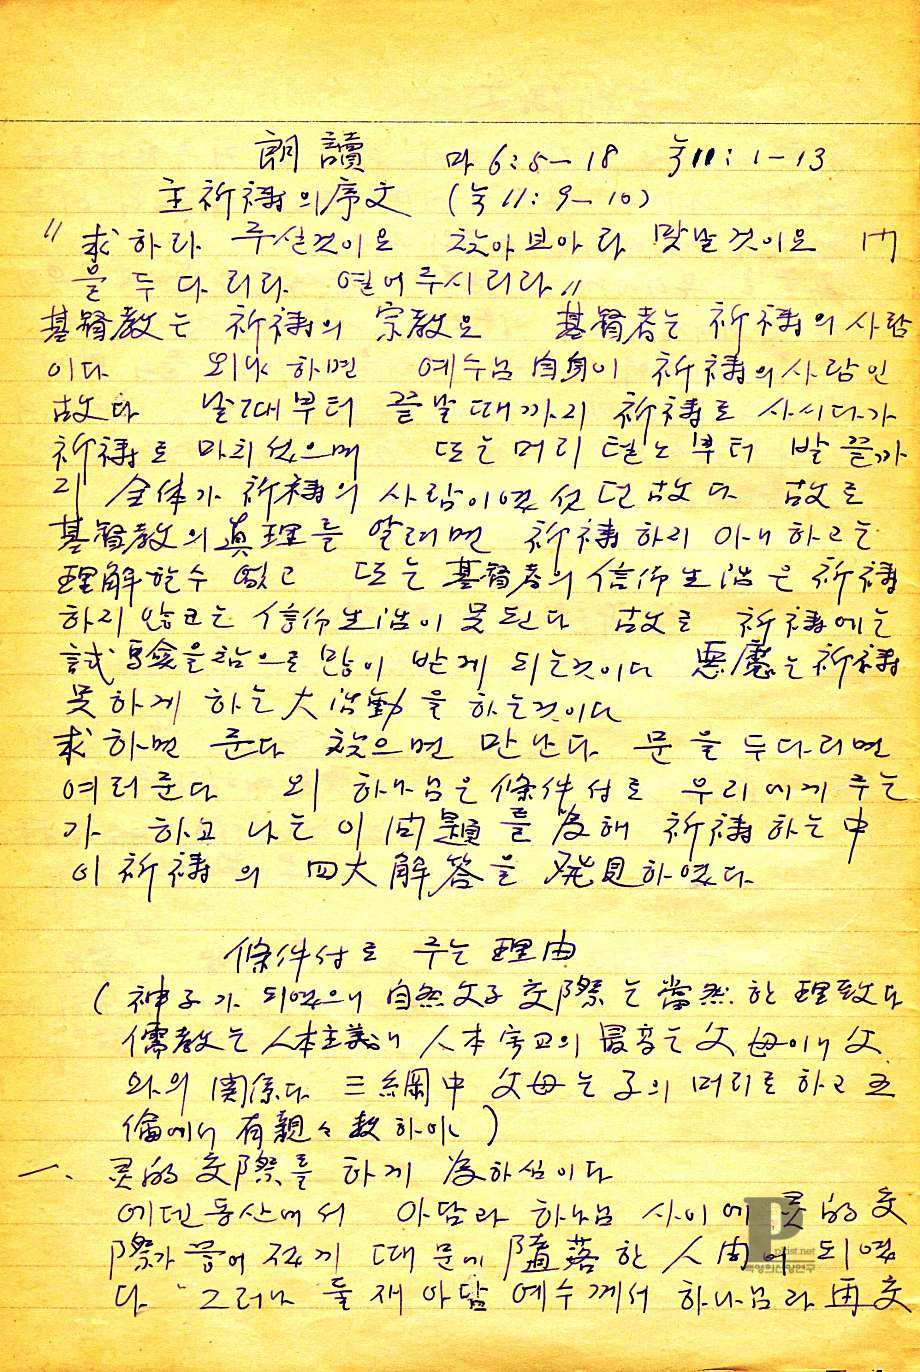 朗讀 마 6:5-18 눅 11:1-13
主祈禱의 序文 (눅 11:9-10)
"求하라 주실것이요 찾아보아라 맞날것이요 門
을 두다리라 열어주시리라"
基督教는 祈禱의 宗教요 基督者는 祈禱의 사람
이다 외냐 하면 예수님 自身이 祈禱의 사람인
故다 날때부터 끝날때까지 祈禱로 사시다가
祈禱로 마치셨으며 또는 머리털노부터 발끝까
지 全体가 祈禱의 사람이였섯던 故다 故로
基督教의 真理를 알려면 祈禱하지 아니하고는
理解할수 없고 또는 基督者의 信仰生活은 祈禱
하지 않고는 信仰生活이 못된다 故로 祈禱에는
試驗을 참으로 많이 받게 되는것이다 惡魔는 祈禱
못하게 하는 大活動을 하는것이다
求하면 준다 찾으면 만난다 문을 두다리면
여러준다 외 하나님은 條件付로 우리에게 주는
가 하고 나는 이 問題를 為해 祈禱하는 中
이 祈禱의 四大解答을 発見하였다
條件付로 주는 理由
(神子가 되였으니 自然父子交際는 當然한 理致다
儒教는 人本主義니 人本宗教의 最高는 父母이니 父
와의 関係다 三綱中 父母는 子의 머리로 하고 五
倫에서 有親 하야)
一、灵的交際를 하게 為하심이다
에덴동산에서 아담과 하나님 사이에 灵的交
際가 끊어졌기 때문에 墮落한 人間이 되였
다 그러나 둘재 아담 예수께서 하나님과 再交
P
pkist.net
백영희신앙연구